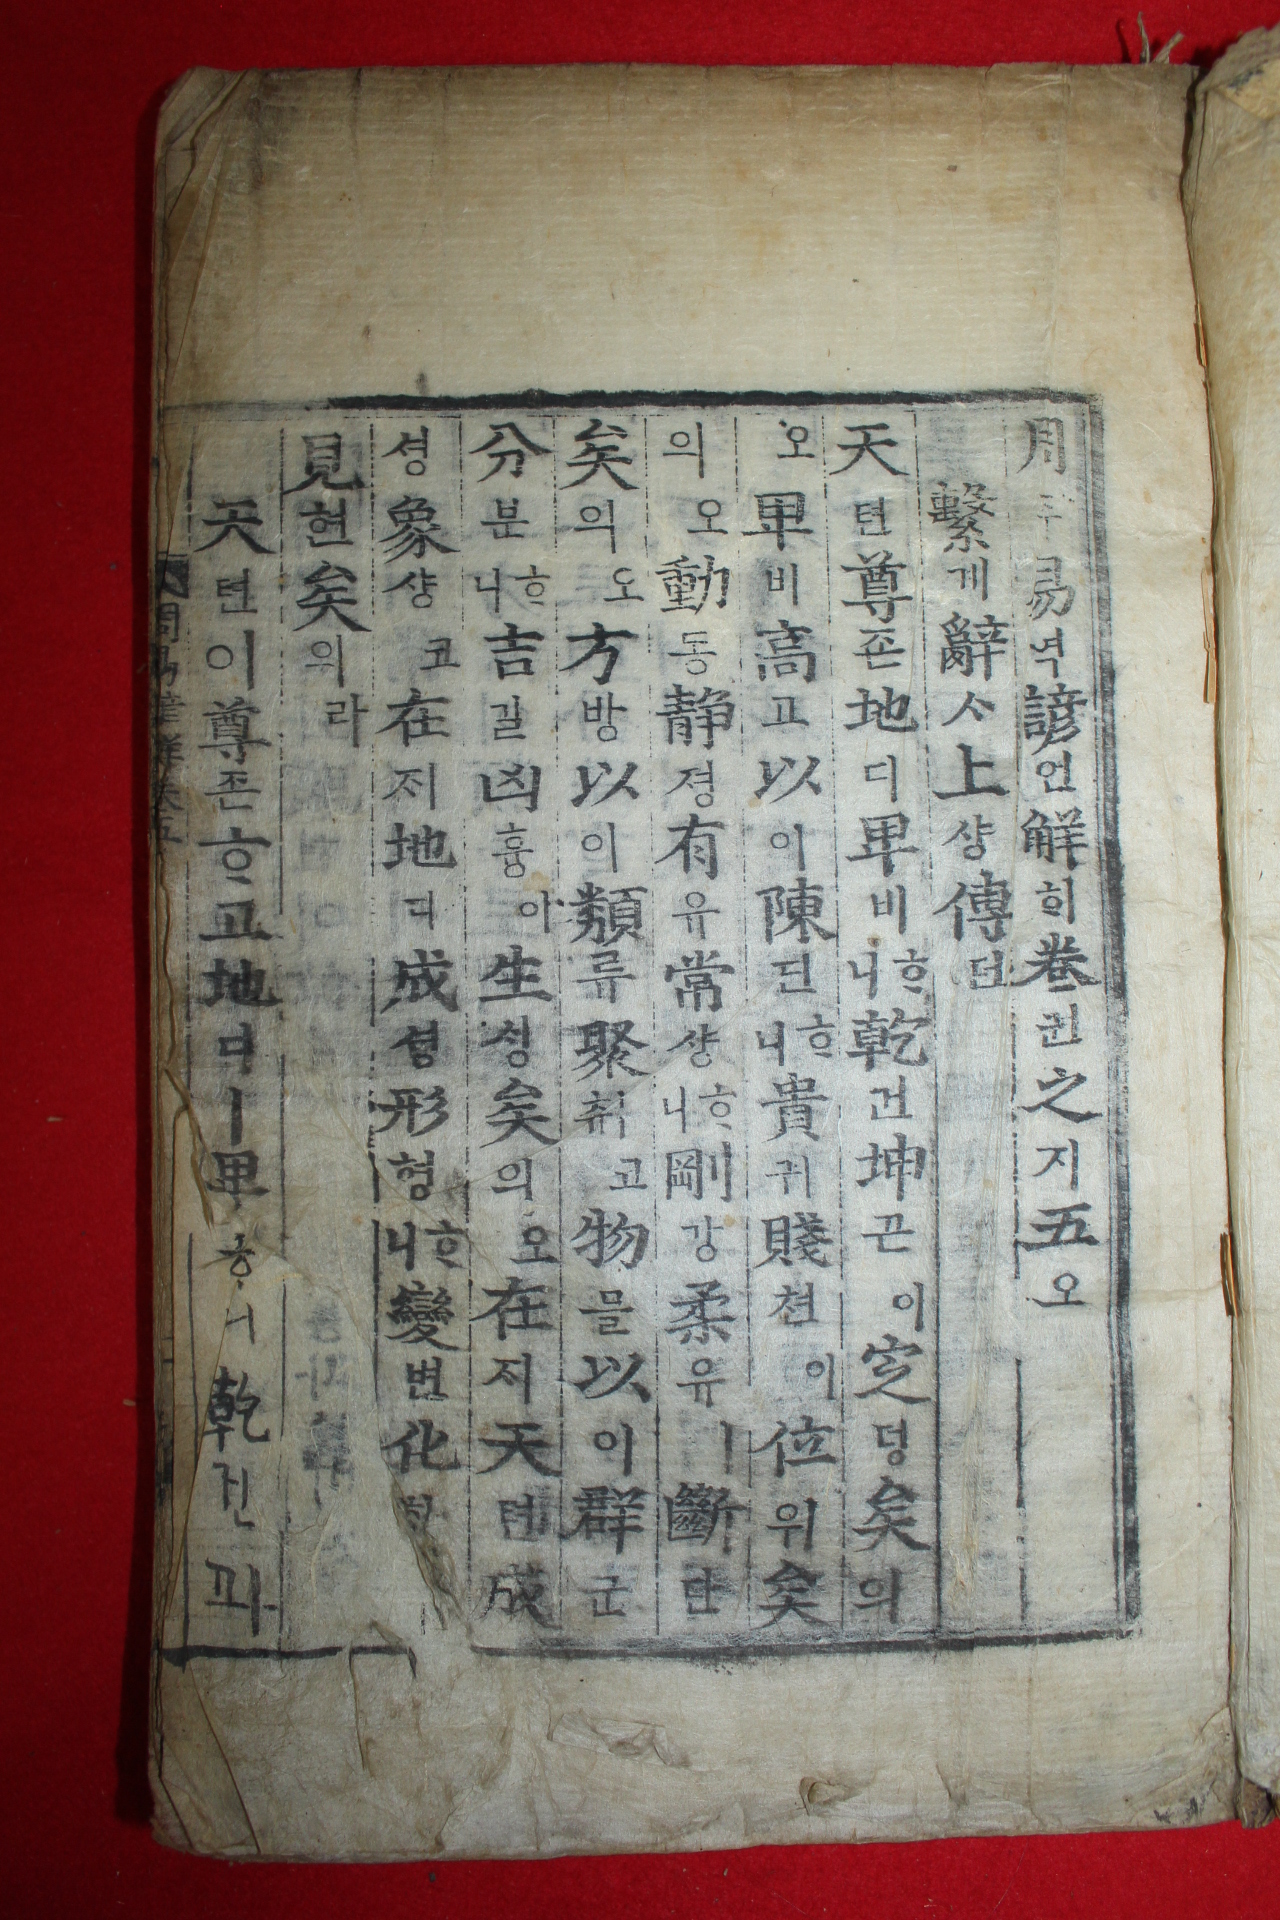 周쥬易역諺언解ᄒᆡ卷권之지五오
繫계辭ᄉ上샹傳뎐
天텬尊존地디卑비ᄒᆞ니乾건坤곤이㝎뎡矣의
오卑비高고以이陳딘ᄒᆞ니貴귀賤쳔이位위矣
의오動동靜졍有유常샹ᄒᆞ니剛강柔유ㅣ斷단
矣의오方방以이類류聚취코物믈以이群군
分분ᄒᆞ니吉길凶흉이生ᄉᆡᆼ矣의오在ᄌᆡ天텬成
셩象샹코在ᄌᆡ地디成셩形형ᄒᆞ니變변化화
見현矣의라
天텬이尊존ᄒᆞ고地디ㅣ卑ᄒᆞ니乾건과
周易諺解卷五